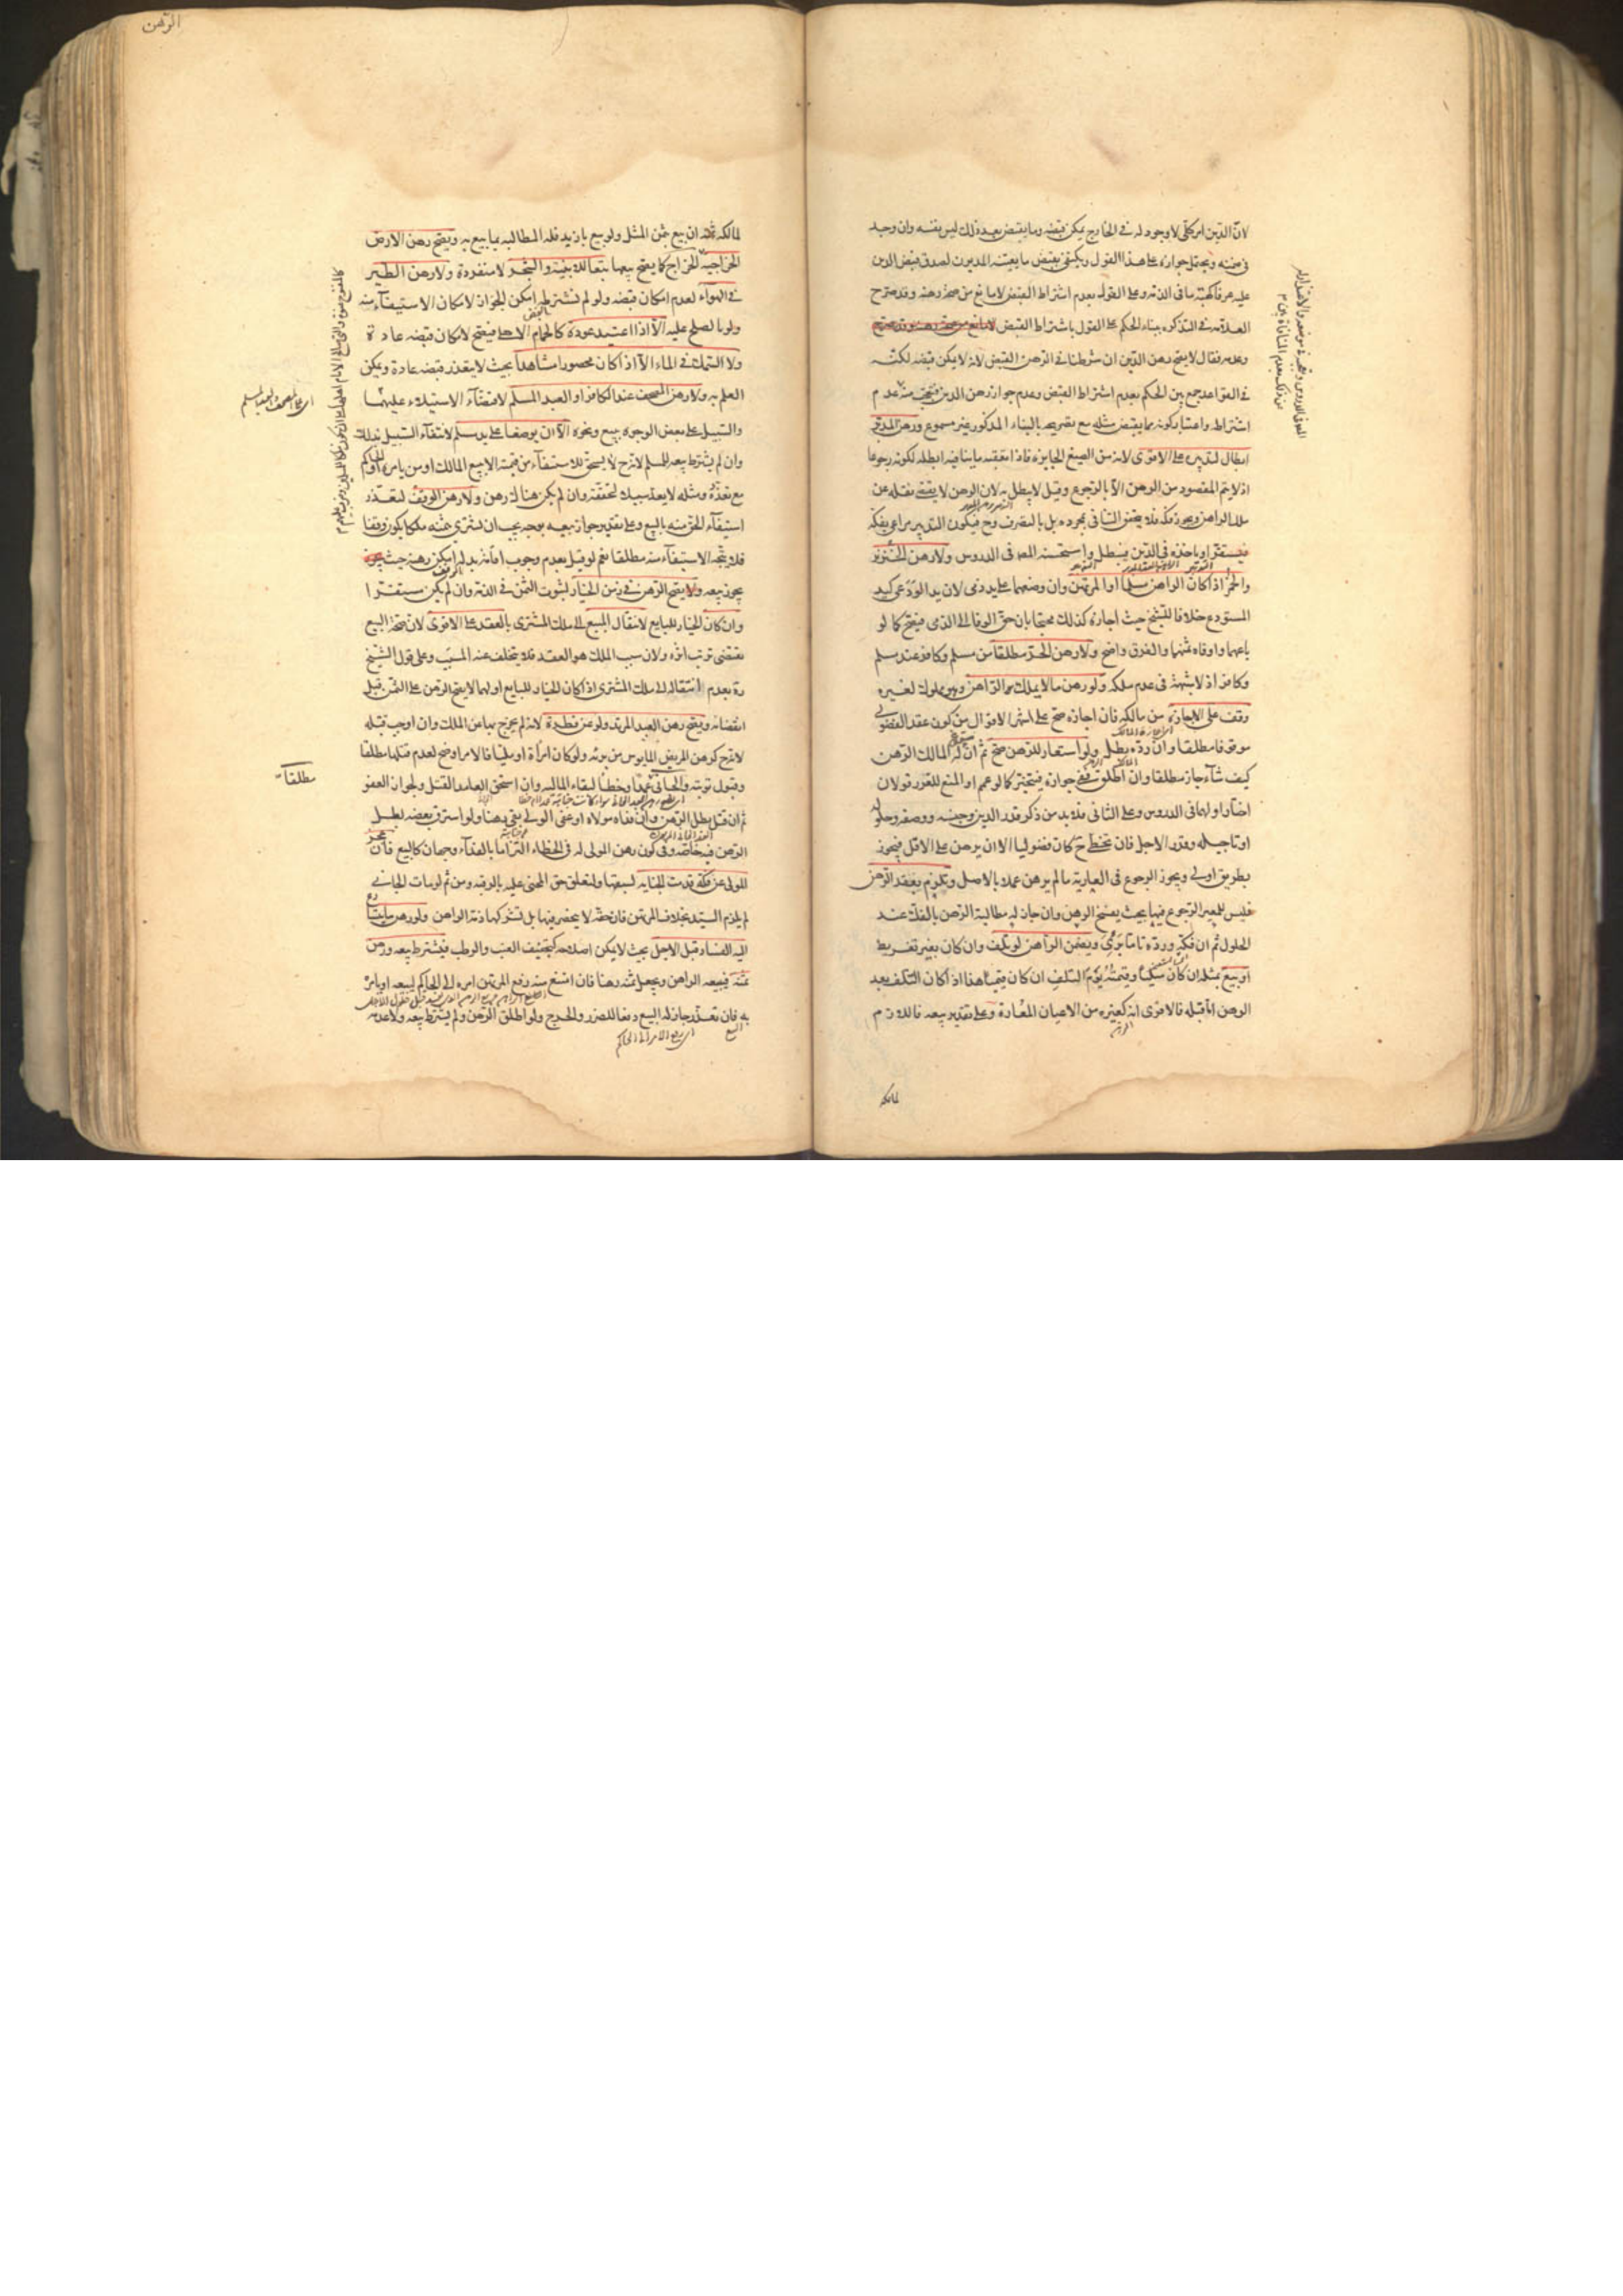 الرهن
لانّ الدّين امر كلّي لا وجود له في الخارج يمكن قبضه وما يقبض بعد ذلك ليس نفسه وان وجد
في ضمنه ويحتمل جوازه على هذا القول ويكتفى بقبض ما يعيّنه المديون لصدق قبض الدين
عليه عرفا كهبة ما في الذمّة وعلى القول بعدم اشتراط القبض لا مانع من صحّة رهنه وقد صرّح
العلامة في التذكرة ببناء الحكم على القول باشتراط القبض
وعدمه فقال لا يصحّ رهن الدّين ان شرطنا في الرّهن القبض لانه لا يمكن قبضه لكنّه
في القواعد جمع بين الحكم بعدم اشتراط القبض وعدم جواز رهن الدين فتعجّب منه عدم
اشتراطه واعتبار كونه مما يقبض مثله مع تصريحه بالبناء المذكور غير مسموع ورهن المدبّر
ابطال لتدبيره على الاقوى لانه من الصيغ الجايزة فاذا تعقّبه ما ينافيه ابطله لكونه رجوعا
اذ لا يتمّ المقصود من الرهن الّا بالرّجوع وقيل لا يبطل به لان الرهن لا يقتضي نقله عن
ملك الراهن ويجوز فكّه فلا يتحقق التنافي بمجرده بل بالتصرف وح فيكون التدبير مراعى بفكّه
فيستقرّ او ياخذه في الدّين فيبطل واستحسنه المصـ في الدروس ولا رهن الخنزير
والخمر اذا كان الراهن مسلما او المرتهن وان وضعهما على يد ذمى لان يد الودعى كيد
المستودع خلافا للشيخ حيث اجازه كذلك محتجّا بان حقّ الوفا الى الذمى فيصحّ كما لو
باعهما واوفاه ثمنهما والفرق واضح ولا رهن الحرّ مطلقا من مسلم وكافر عند مسلم
وكافر اذ لا شبهة في عدم ملكه ولو رهن ما لا يملك الرّاهن وهو مملوك لغيره
وقف على الاجازة من مالكه فان اجازه صحّ على اشهر الاقوال من كون عقد الفضولى
موقوفا مطلقا وان ردّه بطل ولو استعار للرهن صحّ ثمّ ان المالك الرّهن
كيف شاء جاز مطلقا وان اطلق ففي جوازه فيتخيّر كما لو عمم او المنع للغرر قولان
اختار اولهما في الدروس وعلى الثاني فلا بد من ذكر قدر الدين وجنسه ووصفه وحلوله
او تاجيله وقدر الاجل فان تخطّى ح كان فضوليا الّا ان يرهن على الاقل فيجوز
بطريق اولى ويجوز الرجوع في العارية ما لم يرهن عملا بالاصل وتلزم بعقد الرّهن
فليس للمعير الرّجوع فيها بحيث يفسخ الرهن وان جاز له مطالبة الرّاهن بالفكّ عند
الحلول ثم ان فكّه وردّه تاما برئ ويضمن الرّاهن لو تلف وان كان بغير تفريط
او بيع بمثله ان كان مثليّا وقيمته يوم التلف ان كان قيميّا هذا اذا كان التلف بعد
الرهن امّا قبله فالاقوى انه كغيره من الاعيان المعارة وعلى تقدير بيعه فاللازم
لمالكه
لمالكه ثمنه ان بيع بثمن المثل ولو بيع بازيد فله المطالبة بما بيع به ويصحّ رهن الارض
الخراجيّة كما يصحّ بيعها تبعا للابنية والشجر لا منفردة ولا رهن الطير
في الهوآء لعدم امكان قبضه ولو لم نشترطه امكن الجواز لامكان الاستيفاء منه
ولو بالصلح عليه الّا اذا اعتيد عوده كالحمام الاهلى فيصحّ لامكان قبضه عادة
ولا السّمك في الماء الّا اذا كان محصورا مشاهدا بحيث لا يتعذر قبضه عادة ويمكن
العلم به ولا رهن المصحف عند الكافر او العبد المسلم لاقتضآء الاستيلاء عليهما
والسّبيل على بعض الوجوه ببيع ونحوه الّا ان يوضعا على يد مسلم لانتفآء السّبيل بذلك
وان لم يشترط بيعه للمسلم لانه ح لا يستحقّ للاستيفآء من قيمته الّا ببيع المالك او من يامره او الحاكم
مع تعذّره ومثله لا يعدّ سبيلا لتحقّقه وان لم يكن هناك رهن ولا رهن الوقف لتعذّر
استيفآء الحق منه بالبيع وعلى تقدير جواز بيعه بوجه يجب ان يشترى بثمنه ملكا يكون وقفا
فلا يتّجه الاستيفآء منه مطلقا نعم لو قيل بعدم وجوب اقامة بدله امكن رهنه حيث
يجوز بيعه ويصحّ الرّهن في زمن الخيار لثبوت الثمن في الذمّة وان لم يكن مستقرّا
وان كان الخيار للبايع لانتقال المبيع الى ملك المشترى بالعقد على الاقوى لان صحّة البيع
تقتضى ترتّب اثره ولان سبب الملك هو العقد فلا يتخلّف عنه المسبّب وعلى قول الشيخ
ره بعدم انتقاله الى ملك المشترى اذا كان الخيار للبايع او لهما لا يصحّ الرّهن على الثمن قبل
انقضائه ويصحّ رهن العبد المرتد ولو عن فطرة لانه لم يخرج بها عن الملك وان اوجب قتله
لانه ح كرهن المريض المايوس من برئه ولو كان امرأة او مليا فالامر اوضح لعدم قتلهما مطلقا
وقبول توبته والجاني عمدا وخطأ لبقاء الماليه وان استحقّ العامد القتل ولجواز العفو
ثم ان قتل بطل الرّهن وان فداه مولاه او عفى الولى بقى رهنا ولو استرق بعضه بطل
الرّهن فيه خاصّة وفى كون رهن المولى له في الخطاء التزاما بالفدآء وجهان كالبيع فان عجز
المولى عن فكّه قدمت الجناية لسبقها ولتعلّق حق المجنى عليه بالرقبة ومن ثم لو مات الجاني
لم يلزم السيّد بخلاف المرتهن فان حقّه لا ينحصر فيها بل تشركها ذمّة الراهن ولو رهن ما يتسارع
اليه الفساد قبل الاجل بحيث لا يمكن اصلاحه كتجفيف العنب والرطب فليشترط بيعه ورهن
ثمنه فيبيعه الراهن ويجعل ثمنه رهنا فان امتنع منه رفع المرتهن امره الى الحاكم ليبيعه او يامر
به فان تعذّر جاز له البيع دفعا للضرر والحرج ولو اطلق الرّهن ولم يشترط بيعه ولا عدمه
مطلقا